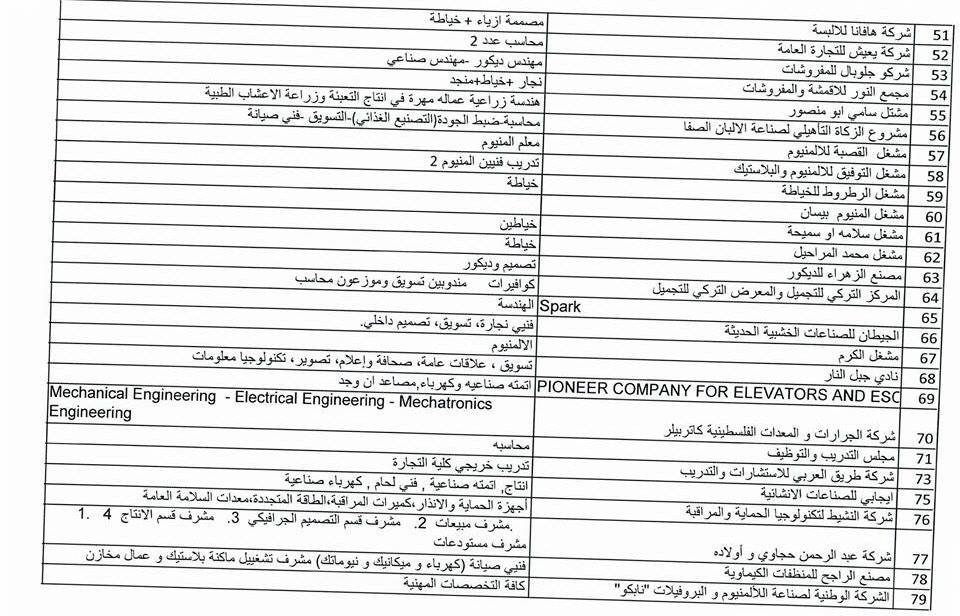 51 شركة هافانا للالبسة مصممة ازياء + خياطة
52 شركة يعيش للتجارة العامة محاسب عدد 2
53 شركو جلوبال للمفروشات مهندس ديكور -مهندس صناعي
54 مجمع النور للاقمشة والمفروشات نجار +خياط+منجد
55 مشتل سامي ابو منصور هندسة زراعية عماله مهرة في انتاج التعبئة وزراعة الاعشاب الطبية
56 مشروع الزكاة التأهيلي لصناعة الالبان الصفا محاسبة-ضبط الجودة(التصنيع الغذائي)-التسويق -فني صيانة
57 مشغل القصبة للالمنيوم معلم المنيوم
58 مشغل التوفيق للالمنيوم والبلاستيك تدريب فنيين المنيوم 2
59 مشغل الرطروط للخياطة خياطة
60 مشغل المنيوم بيسان
61 مشغل سلامه او سميحة خياطين
62 مشغل محمد المراحيل خياطة
63 مصنع الزهراء للديكور تصميم وديكور
64 المركز التركي للتجميل والمعرض التركي للتجميل كوافيرات مندوبين تسويق وموزعون محاسب
65 Spark الهندسة
66 الجيطان للصناعات الخشبية الحديثة فنيي نجارة، تسويق، تصميم داخلي.
67 مشغل الكرم الالمنيوم
68 نادي جبل النار تسويق ، علاقات عامة، صحافة وإعلام، تصوير، تكنولوجيا معلومات
69 PIONEER COMPANY FOR ELEVATORS AND ESC اتمته صناعيه وكهرباء,مصاعد ان وجد
Mechanical Engineering - Electrical Engineering - Mechatronics
Engineering
70 شركة الجرارات و المعدات الفلسطينية كاتربيلر
71 مجلس التدريب والتوظيف محاسبه
73 شركة طريق العربي للاستشارات والتدريب تدريب خريجي كلية التجارة
75 ايجابي للصناعات الانشائية انتاج, اتمته صناعية , فني لحام , كهرباء صناعية
76 شركة النشيط لتكنولوجيا الحماية والمراقبة أجهزة الحماية والانذار،كميرات المراقبة,الطاقة المتجددة,معدات السلامة العامة
1. مشرف مبيعات 2. مشرف قسم التصميم الجرافيكي 3. مشرف قسم الانتاج 4.
77 شركة عبد الرحمن حجاوي و أولاده مشرف مستودعات
78 مصنع الراجح للمنظفات الكيماوية فنيي صيانة (كهرباء و ميكانيك و نيوماتك) مشرف تشغييل ماكنة بلاستيك و عمال مخازن
79 الشركة الوطنية لصناعة اللالمنيوم و البروفيلات "نابكو" كافة التخصصات المهنية